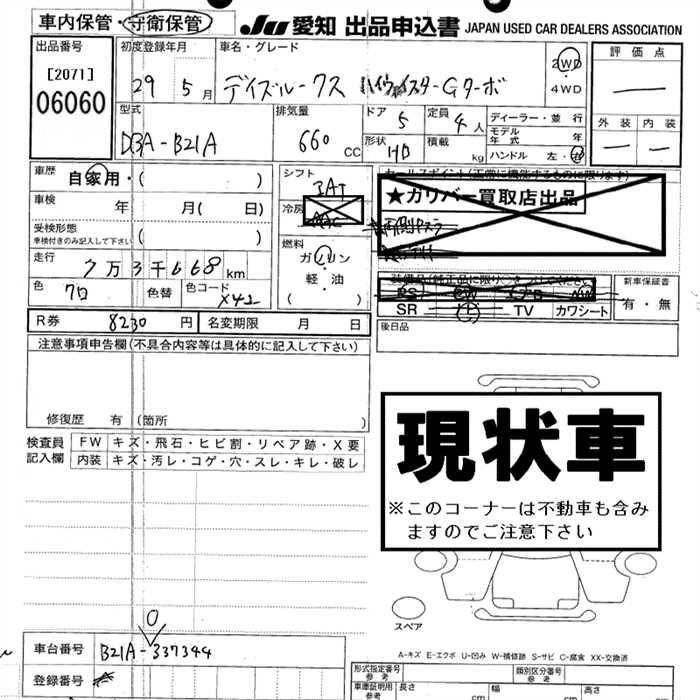 車内保管・守衛保管
JU 愛知 出品申込書 JAPAN USED CAR DEALERS ASSOCIATION
出品番号
[2071]
06060
初度登録年月
29年 5月
車名・グレード
デイズルークス ハイウェイスターGターボ
2WD
4WD
評価点
—
外装 内装
— —
型式
DBA-B21A
排気量
660 CC
ドア
5
定員
4人
形状
積載
kg
ディーラー・並行
モデル年式 年
ハンドル 左・右
車歴
自家用・( )
車検
年 月( 日)
受検形態
車検付きのみ記入して下さい
( )
走行
7万3千668km
色
色替
色コード
シフト
3AT
冷房
AAC
燃料
ガソリン
軽・油
( )
セールスポイント(正常に機能するものに限ります)
★カリバー買取店出品
装備品(純正品に限り、○をつけて下さい)
PS PW エアロ AW
SR TV カワシート
新車保証書
有・無
R券 8230円
名変期限 月 日
後日品
注意事項申告欄(不具合内容等は具体的に記入して下さい)
修復歴 有 (箇所 )
検査員記入欄
FW キズ・飛石・ヒビ割・リペア跡・X要
内装 キズ・汚レ・コゲ・穴・スレ・キレ・破レ
現状車
※このコーナーは不動車も含み
ますのでご注意下さい
スペア
A-キズ E-エクボ U-凹み W-補修跡 S-サビ C-腐食 XX-交換済
0
車台番号 B21A-337344
登録番号
形式指定番号
参考
類別区分番号
参考
車庫証明用
参考
長さ cm
幅 cm
高さ cm